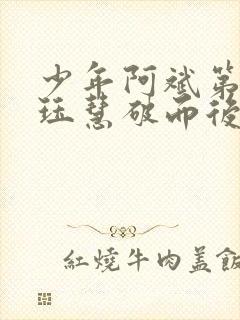 少年阿斌第
珏慧破而後
紅燒牛肉盖飯